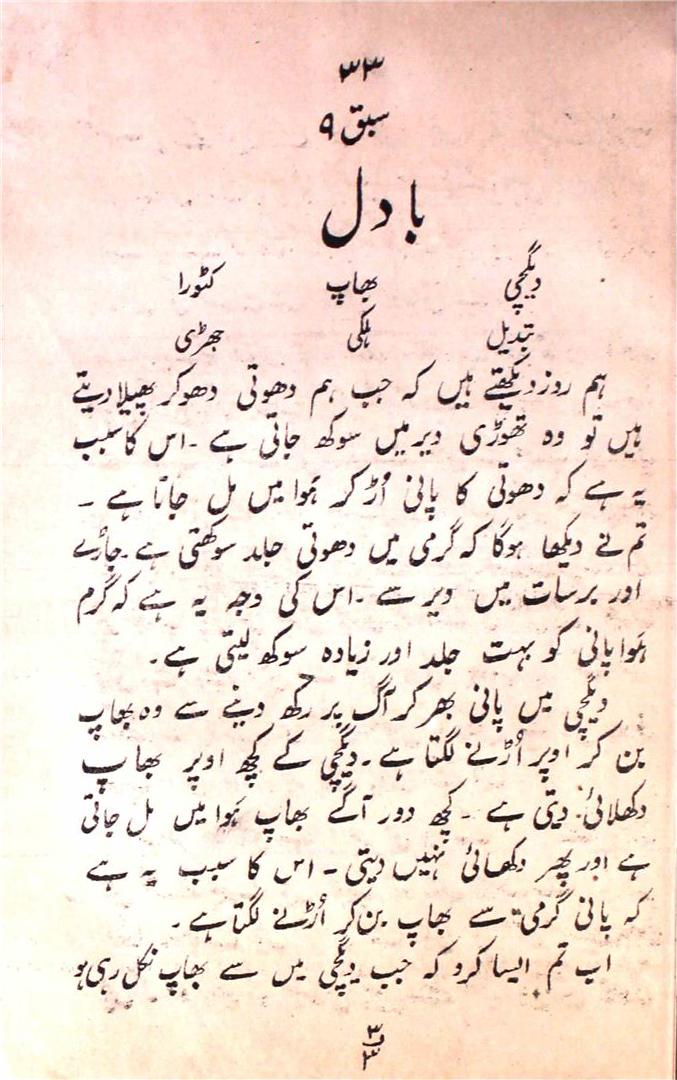 ۳۳
سبق ۹
بادل
دیگچی بھاپ کٹورا
تبدیل ہلکی جھڑی
ہم روز دیکھتے ہیں کہ جب ہم دھوتی دھوکر پھیلا دیتے
ہیں تو وہ تھوڑی دیر میں سوکھ جاتی ہے ۔ اس کا سبب
یہ ہے کہ دھوتی کا پانی اُڑ کر ہَوا میں مل جاتا ہے ۔
تم نے دیکھا ہوگا کہ گرمی میں دھوتی جلد سوکھتی ہے ۔ جاڑے
اور برسات میں دیر سے ۔ اس کی وجہ یہ ہے کہ گرم
ہَوا پانی کو بہت جلد اور زیادہ سوکھ لیتی ہے ۔
دیگچی میں پانی بھر کر آگ پر رکھ دینے سے وہ بھاپ
بن کر اوپر اُڑنے لگتا ہے ۔ دیگچی کے کچھ اوپر بھاپ
دکھلائی دیتی ہے ۔ کچھ دور آگے بھاپ ہَوا میں مل جاتی
ہے اور پھر دکھائی نہیں دیتی ۔ اس کا سبب یہ ہے
کہ پانی گرمی سے بھاپ بن کر اُڑنے لگتا ہے ۔
اب تم ایسا کرو کہ جب دیگچی میں سے بھاپ نکل رہی ہو